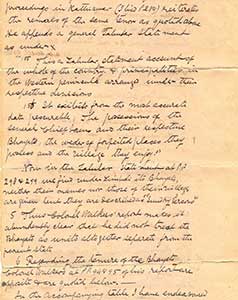 proceedings in Kattiawar (Ibid 280) reiterates
the remarks of the same Tenor as quoted above
He appends a general Tabular Statement
as under x
"This a Tabular statement account of
the whole of the country & principalities in
the Western peninsula arranged under their
respective divisions
It exibits from the most accurate
data procurable, The possessions of the
several chieftains and their respective
Bhayats, the
places they
possess and the village they enjoy
Now in the Tabular Statement at PP
298 & 299 we find under
its Bhayats,
neither their names nor those of their village
are given but they are described as
5 Thus Colonel Walker's report makes it
abundantly clear that he did not treat the
Bhayats as units altogether separate from the
parent State
6 Regarding the tenure of the Bhayats
Colonel Walker's at PP 94 & 95 of his report are
apposite & are quoted below —
In the Accompanying table I have endeavoured